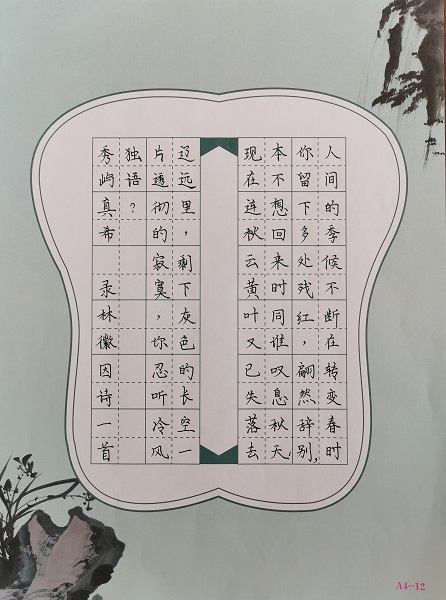 人间的季候不断在转变春时
你留下多处残红，翩然辞别，
本不想回来时同谁叹息秋天
现在连秋云黄叶又已失落去
辽远里，剩下灰色的长空一
片透彻的寂寞，你忍听冷风
独语？
秀屿真希 录林徽因诗一首
A4-12